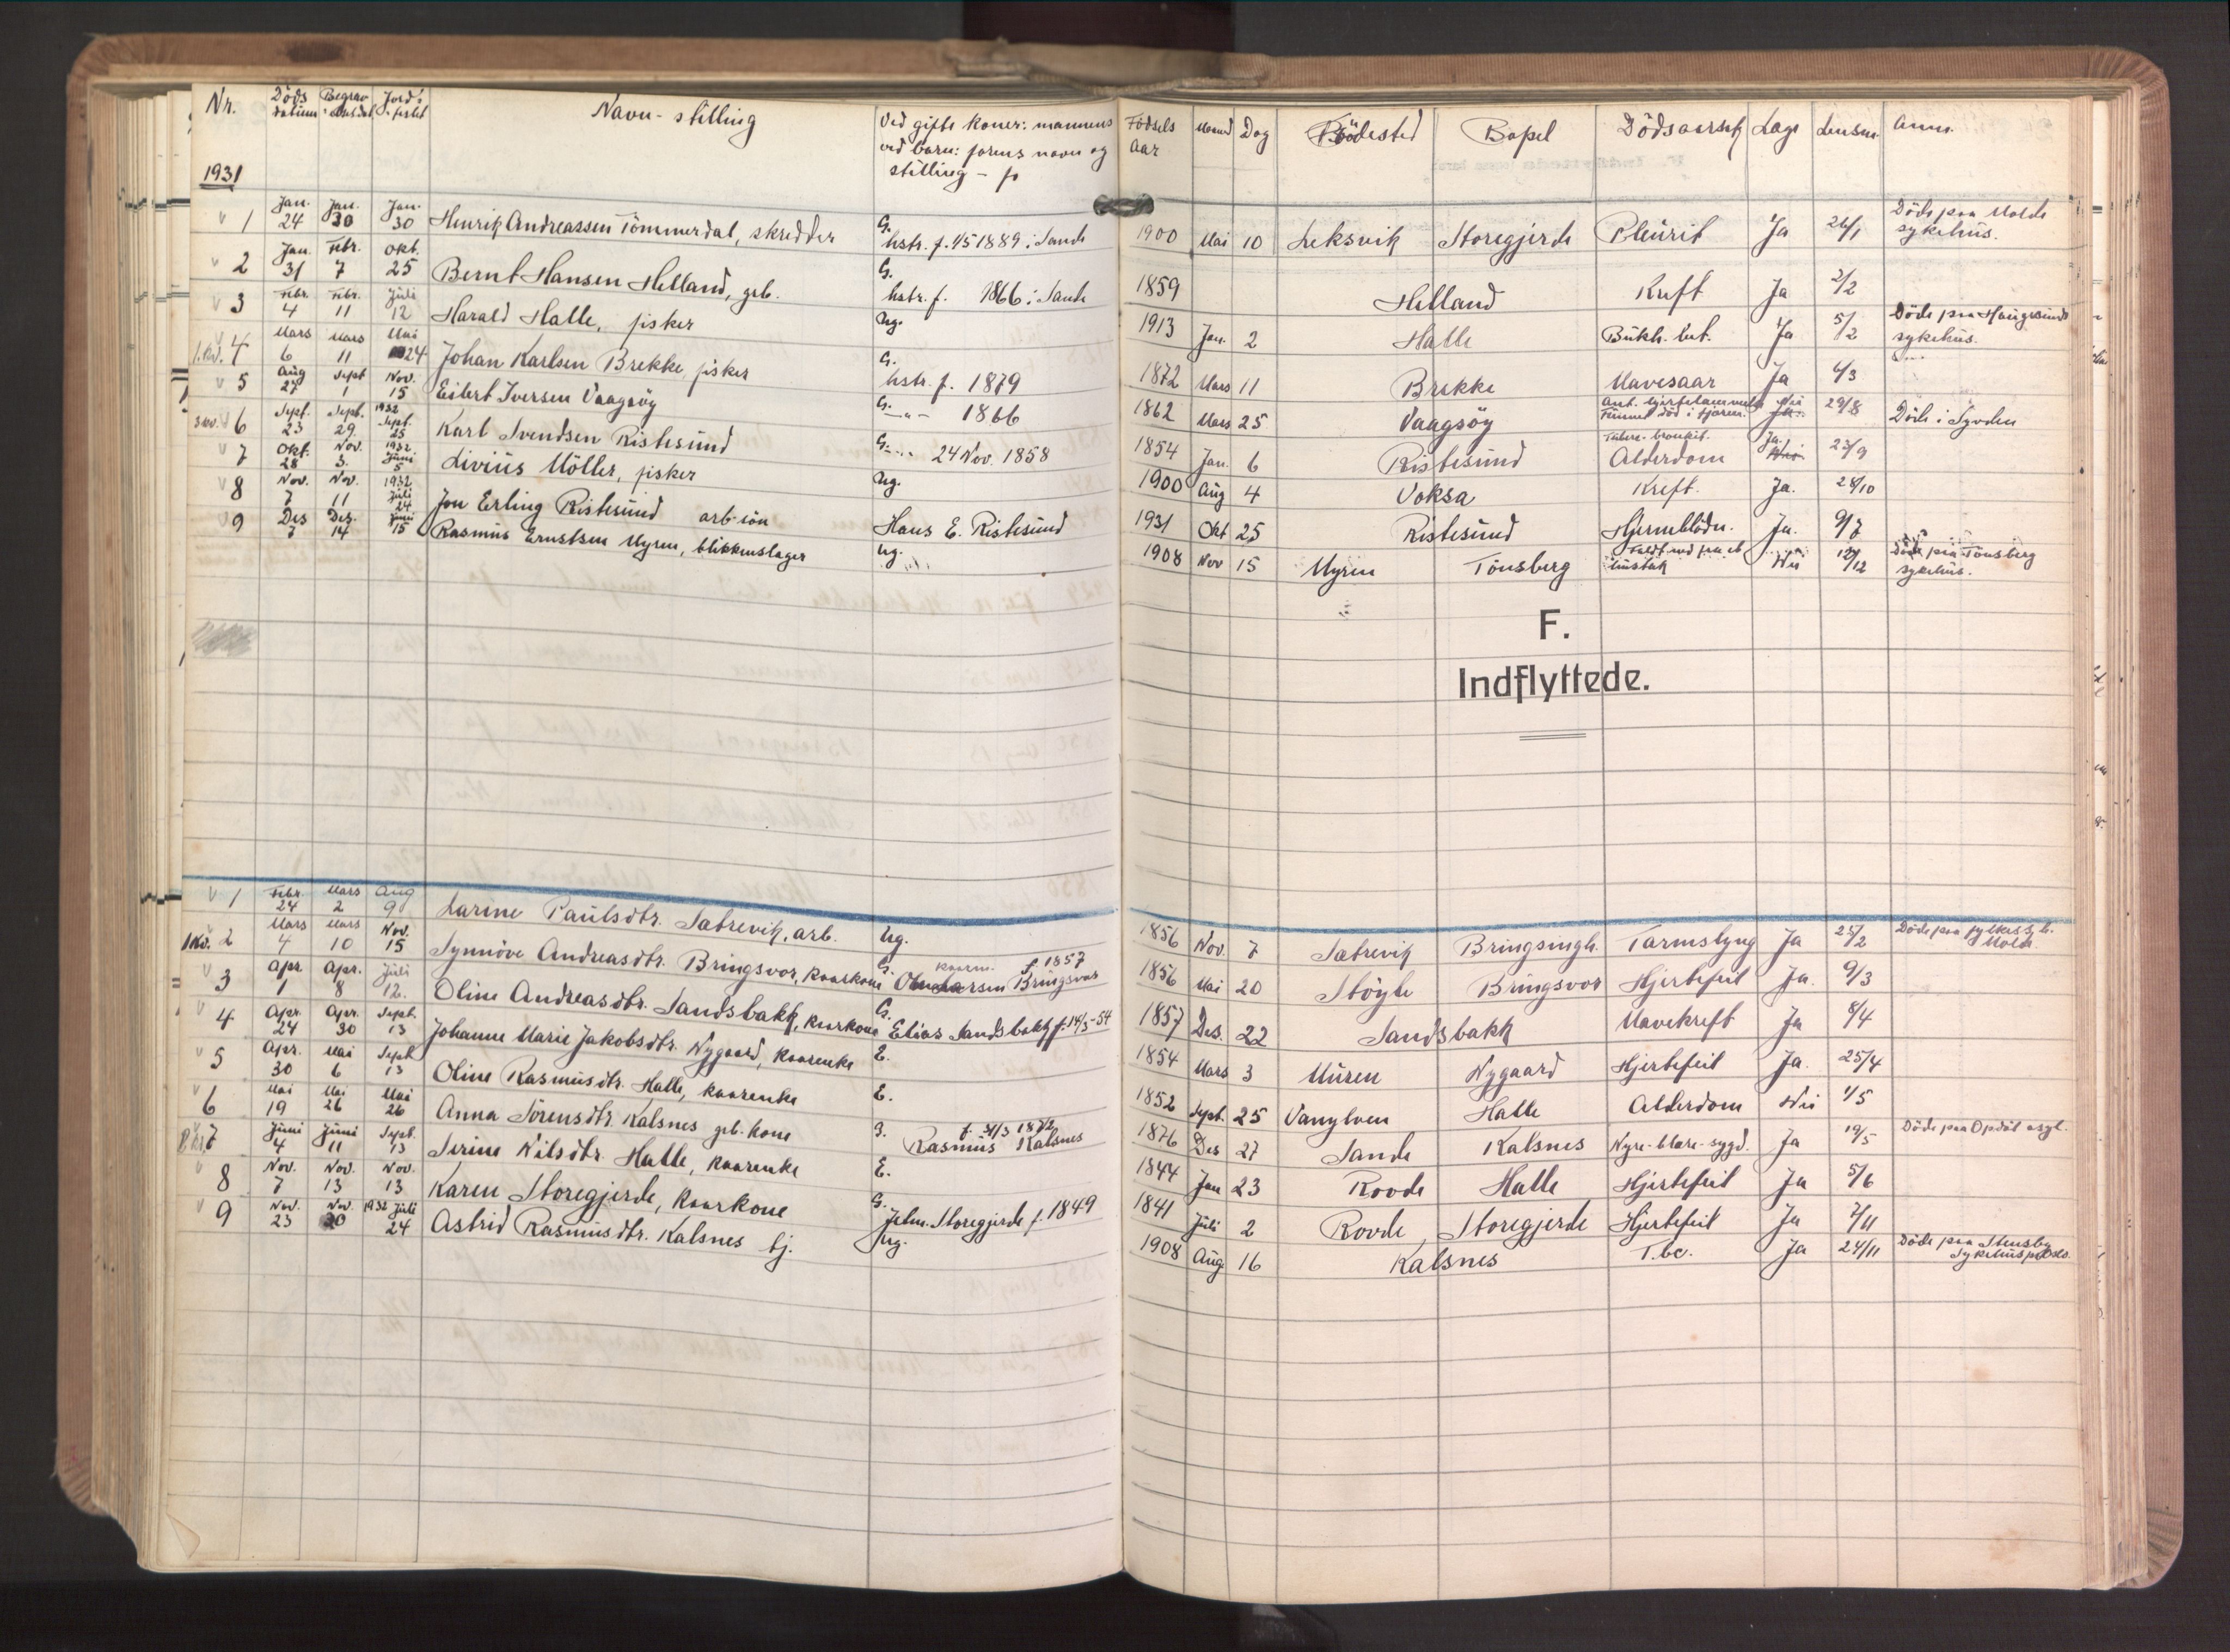 Nr. Döds datum Begrav Jord Navn - stilling Ved gifte koner: mannens
ved barn: farens navn og
stilling - f. Födsels aar Maand Dag Födested Bopel Dödsaarsak Læge Lensm. Anm.
1931
v 1 Jan. 24 Jan. 30 Jan. 30 Henrik Andreassen Tömmerdal, skredder G. hstr. f. 1/5 1889 i Sande 1900 Mai 10 Leksvik Storegjerde Pleurit Ja 26/1 Döde paa Molde sykehus.
v 2 Jan. 31 Febr. 7 Okt. 25 Bernt Hansen Helland, grb. G. hstr. f. 1866 i Sande 1859 Helland Kreft Ja 2/2
v 3 Febr. 4 Febr. 11 Juli 12 Harald Halle, fisker Ug. 1913 Jan. 2 Halle Bukh. bet. Ja 5/2 Döde paa Haugesunds sykehus.
v 4 Mars 6 Mars 11 Mai 24 Johan Karlsen Brekke, fisker G. hstr. f. 1879 1872 Mars 11 Brekke Mavesaar Ja 6/3
v 5 Aug 27 Sept 1 Nov. 15 Eilert Iversen Vaagsöy G. -"- 1866 1862 Mars 25 Vaagsöy Ant. hjertelammelse Funnet död i fjæren. Nei 29/8 Döde i Syvden
v 6 Sept. 23 Sept. 29. 1932 Sept. 25 Karl Svendsen Ristesund G. -"- 24 Nov. 1858 1854 Jan. 6 Ristesund Alderdom Ja. 23/9
v 7 Okt. 28 Nov. 3. 1932 Juni 5 Livius Möller, fisker Ug. 1900 Aug 4 Voksa Kreft. Ja. 28/10
v 8 Nov. 7 Nov. 11 1932 Juli 24 Jon Erling Ristesund arb-sön Hans E. Ristesund 1931 Okt 25 Ristesund Hjerneblödn. Ja. 9/7
v 9 Des 7 Des. 14 Juni 15 Rasmus Ernstsen Myren, blikkenslager Ug. 1908 Nov 15 Myren Tönsberg Faldt ned fra et hustak Nei 12/12 Döde paa Tönsberg sykehus.
F.
Indflyttede.
v 1 Febr. 24 Mars 2 Aug 9 Larine Paulsdtr. Sætrevik, arb. Ug. 1856 Nov. 7 Sætrevik Bringsingh. Tarmslyng Ja 25/2 Döde paa fylkessyk. Molde
2 Mars 4 Mars 10 Nov. 15 Synnöve Andreasdtr. Bringsvor, kaarkone G. kaarm. f 1857 Bringsvor 1856 Mai 20 Stöyle Bringsvor Hjertefeil Ja. 9/3
v 3 Apr 1 Apr. 8 Juli 12. Oline Andreasdtr. Sandsbakk, kaarkone G. Elias Sandsbakk f. 14/3-54 1857 Des. 22 Sandsbakk Mavekreft Ja 8/4
v 4 Apr. 24 Apr. 30 Sept. 13 Johanne Marie Jakobsdtr. Nygaard, kaarenke E. 1854 Mars 3 Muren Nygaard Hjertefeil Ja. 25/4
v 5 Apr. 30 Mai 6 Sept 13 Oline Rasmusdtr. Halle, kaarenke E. 1852 Sept. 25 Vanylven Halle Alderdom Nei 1/5
v 6 Mai 19 Mai 26 Mai 26 Anna Sörensdtr. Kalsnes grb. kone G. f. 31/3 1872 Rasmus Kalsnes 1876 Des 27 Sande Kalsnes Nyre-blære-sygd. Ja 19/5 Döde paa Opdöl asyl.
v 7 Juni 4 Juni 11 Sept. 13 Serine Nilsdtr. Halle, kaarenke E. 1844 Jan 23 Rovde Halle Hjertefeil Ja 5/6
v 8 Nov. 7 Nov. 13 Nov. 13 Karen Storegjerde, kaarkone G. John. Storegjerde f. 1849 1841 Juli 2 Rovde Storegjerde Hjertefeil Ja 7/11
v 9 Nov. 23 Nov. 30 1932 Juli 24 Astrid Rasmusdtr. Kalsnes tj. Ug. 1908 Aug 16 Kalsnes T.bc. Ja 24/11 Döde paa Stensby Sykehus